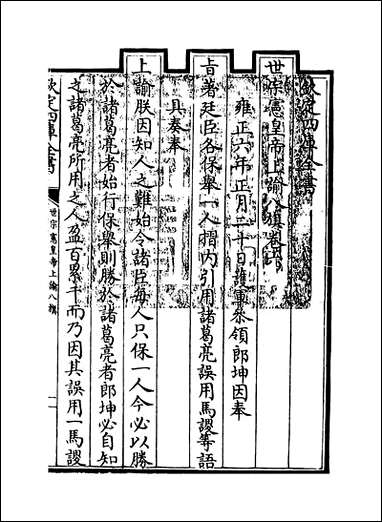 欽定四庫全書
世宗憲皇帝上諭八旗卷六
雍正六年正月三十日護軍叅領郎坤因奉
㫖著廷臣各保舉一人摺內引用諸葛亮誤用馬謖等語
具奏奉
上諭朕因知人之難始令諸臣每人只保一人今必以勝
於諸葛亮者始行保舉則勝於諸葛亮者郎坤必自知
之諸葛亮所用之人盈百累千而乃因其誤用一馬謖
欽定四庫全書
世宗憲皇帝上諭八旗
一